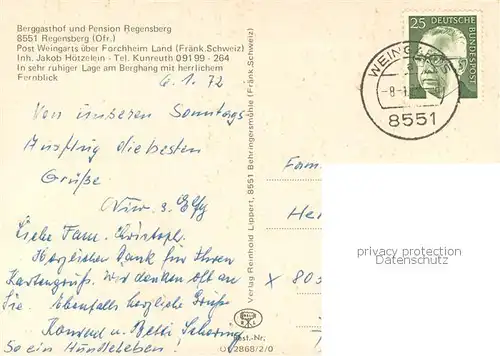 Berggasthof und Pension Regensberg
8551 Regensberg (Ofr.)
Post Weingarts über Forchheim Land (Fränk. Schweiz)
Inh. Jakob Hötzelein - Tel. Kunreuth 09199 - 264
In sehr ruhiger Lage am Berghang mit herrlichem
Fernblick
6.1.72
Von unserem Sonntags
Ausflug die besten
Grüße
Liebe Fam. Christoph.
Herzlichen Dank für Ihren
Kartengruß. Wir denken oft an
Sie. Ebenfalls herzliche Grüße
Konrad u. Betti
So ein Hundeleben!
Verlag Reinhold Lippert, 8551 Behringersmühle (Fränk. Schweiz)
Best.-Nr.
O 2868/2/0
25 DEUTSCHE
BUNDESPOST
WEINGARTS
-8-1
8551
Fam
He
X 80
privacy protection
Datenschutz